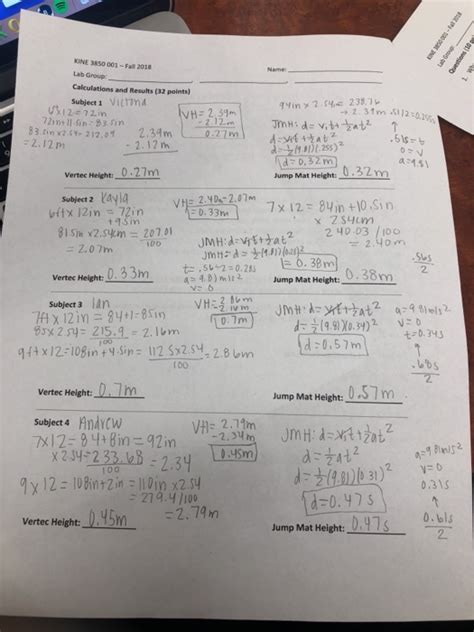 KINE 3850 001 – Fall 2018
Name:
Lab Group:
Calculations and Results (32 points)
Subject 1 Victoria
VH = 2.39m
- 2.12m
0.27m
83.5in x 2.54 = 212.09
= 2.12m
2.39m
- 2.12m
94in x 2.54 = 238.76
→ 2.39m
JMH: d = vit + ½at²
d = vit + ½at²
d = ½(9.81)(.255)²
d = 0.32m
.51s = t
0 = v
a = 9.81
Vertec Height: 0.27m
Jump Mat Height: 0.32m
Subject 2 Kayla
6ft x 12in = 72in
+ 9.5in
81.5in x 2.54cm = 207.01
100
= 2.07m
VH = 2.40m - 2.07m
= 0.33m
7 x 12 = 84in + 10.5in
x 2.54cm
240.03 /100
= 2.40m
JMH: d = vit + ½at²
= 0.38m
t = .56 ÷ 2 = 0.28s
a = 9.81 m/s²
v = 0
.56s
2
Vertec Height: 0.33m
Jump Mat Height: 0.38m
Subject 3 Ian
7ft x 12in = 84 + 1 = 85in
85 x 2.54 = 215.9 = 2.16m
100
9ft x 12 = 108in + 4.5in = 112.5 x 2.54 = 2.86m
100
VH = 2.86m
- 2.16m
0.7m
JMH: d = vit + ½at²
d = ½(9.81)(0.34)²
d = 0.57m
a = 9.81m/s²
v = 0
t = 0.34s
↑
.68s
2
Vertec Height: 0.7m
Jump Mat Height: 0.57m
Subject 4 Andrew
7x12 = 84 + 8in = 92in
x 2.54 = 233.68 = 2.34
100
9 x 12 = 108in + 2in = 110in x 2.54
= 279.4/100
= 2.79m
VH = 2.79m
- 2.34m
0.45m
JMH: d = vit + ½at²
d = ½at²
d = ½(9.81)(0.31)²
d = 0.47s
a = 9.81m/s²
v = 0
0.31s
↑
0.61s
2
Vertec Height: 0.45m
Jump Mat Height: 0.47s
KINE 3850 001 – Fall 2018
Lab Group: